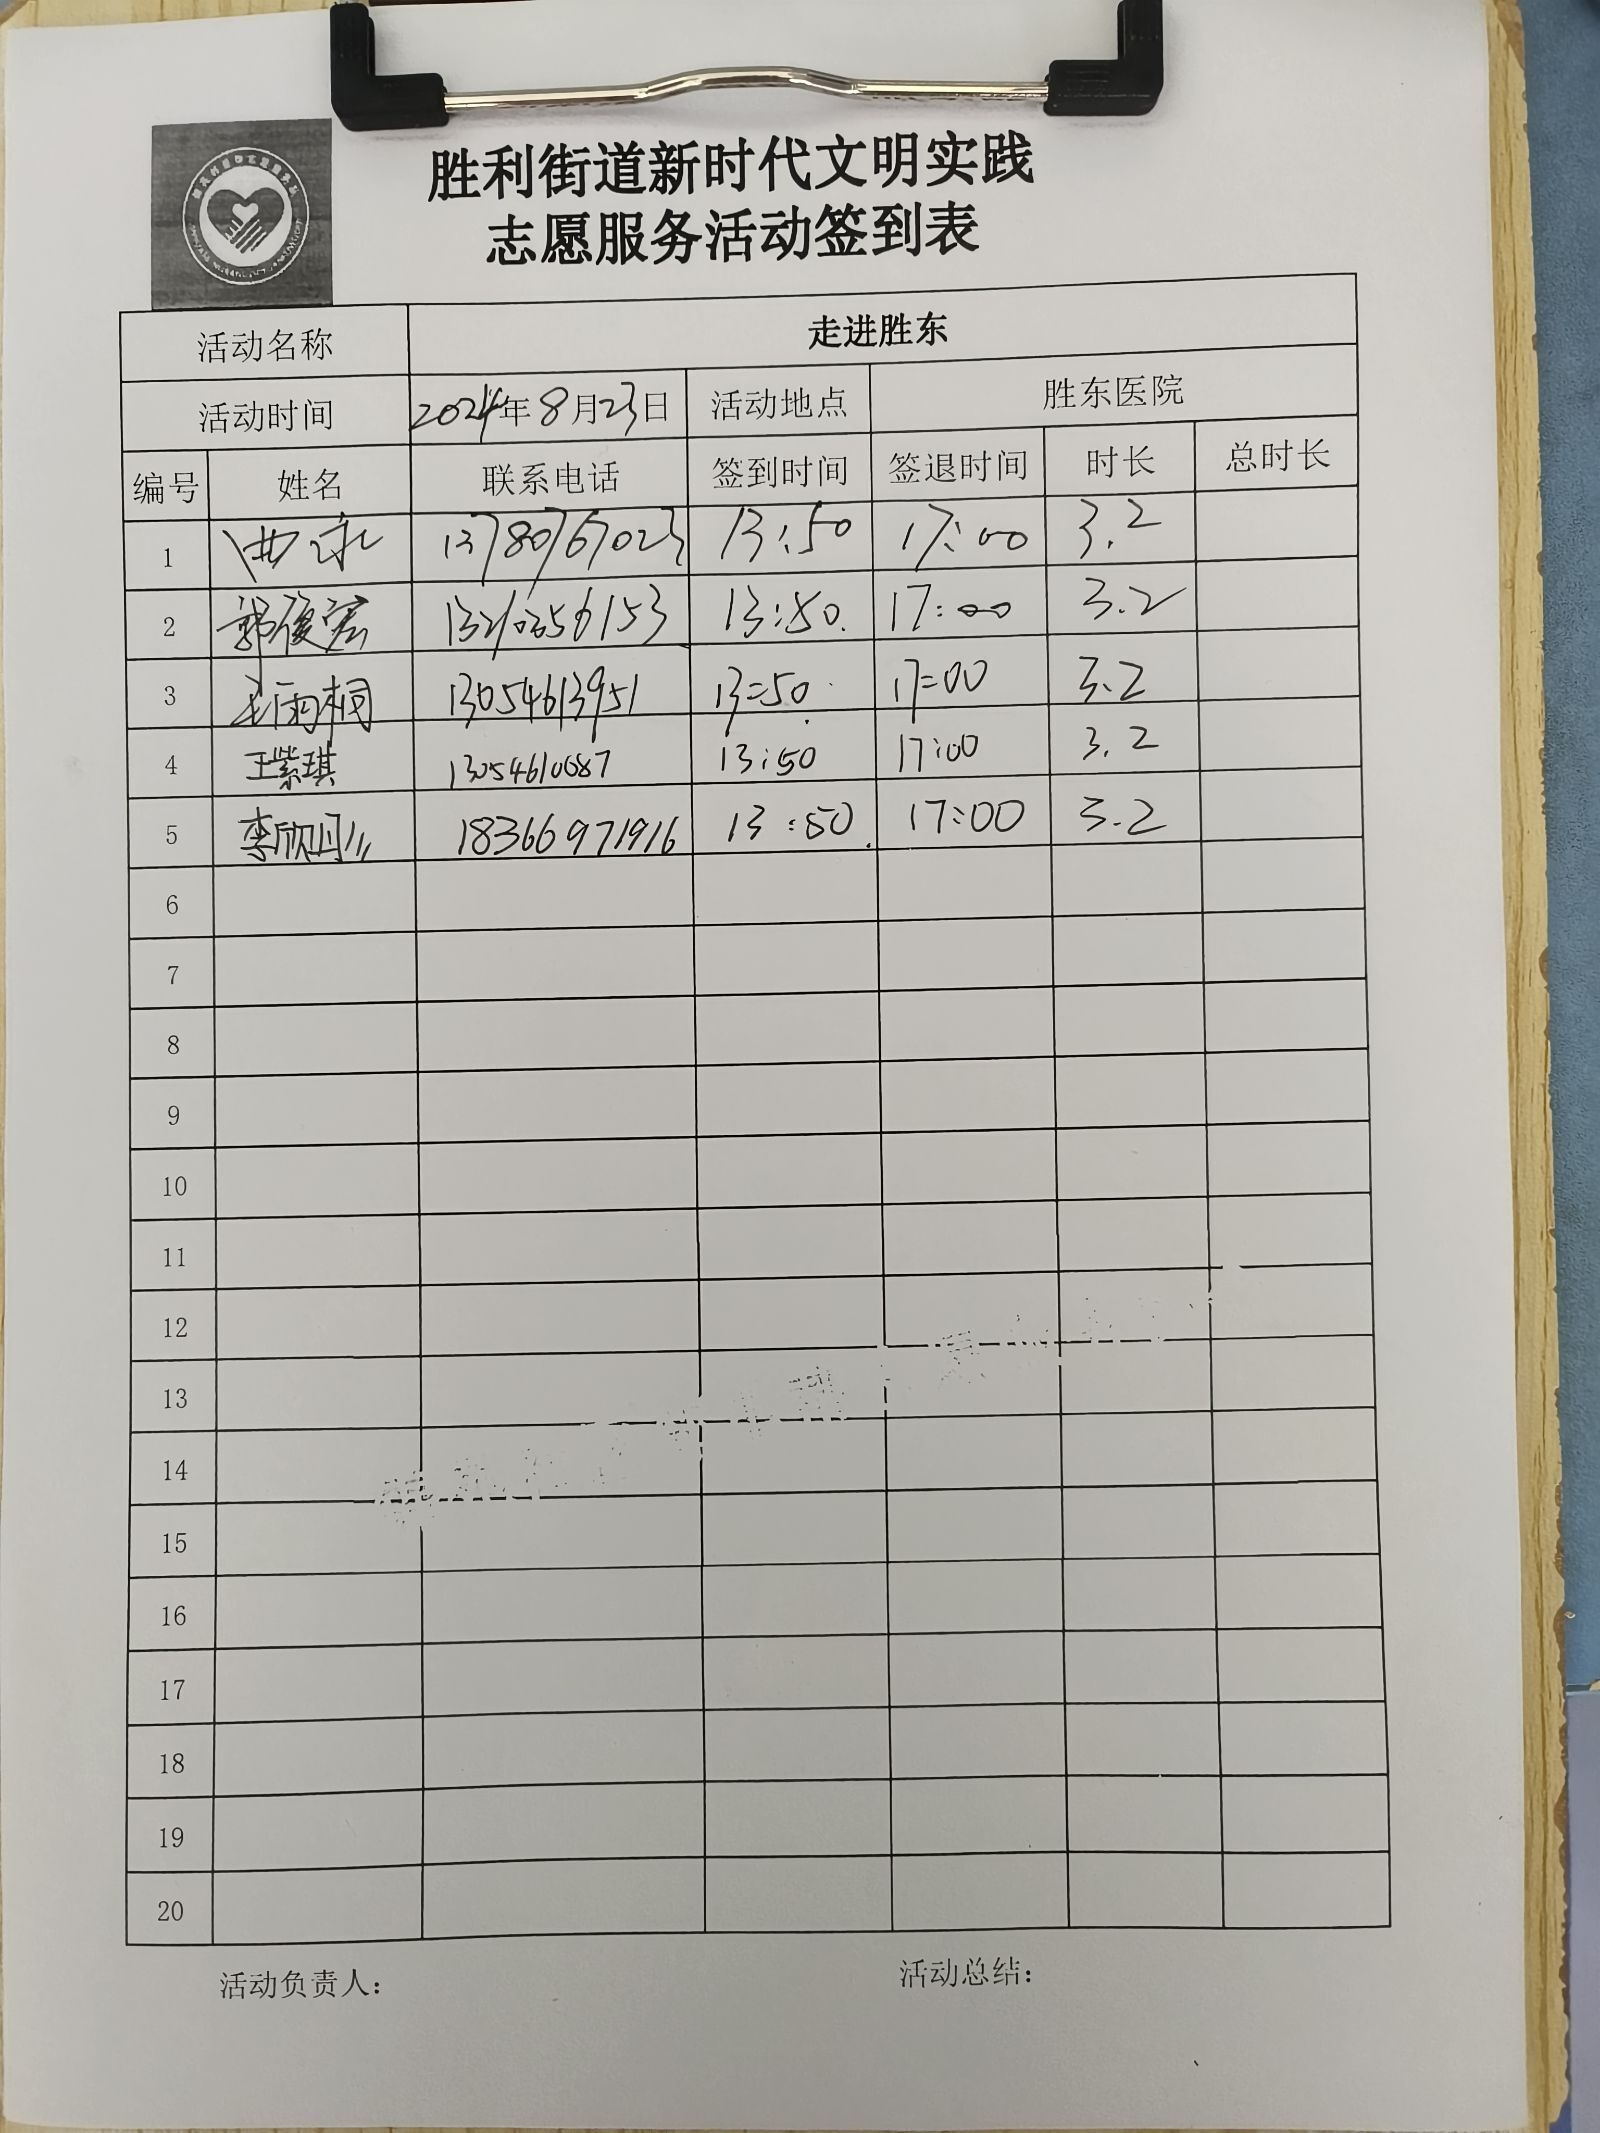 胜利街道新时代文明实践
志愿服务活动签到表
活动名称 走进胜东
活动时间 2024年8月23日 活动地点 胜东医院
编号 姓名 联系电话 签到时间 签退时间 时长 总时长
1 13780767023 13:50 17:00 3.2
2 郭俊宏 13:50. 17:00 3.2
3 雨桐 13054613951 13:50 17:00 3.2
4 王紫琪 13054610087 13:50 17:00 3.2
5 李欣 18366971916 13:50 17:00 3.2
6
7
8
9
10
11
12
13
14
15
16
17
18
19
20
活动负责人： 活动总结：